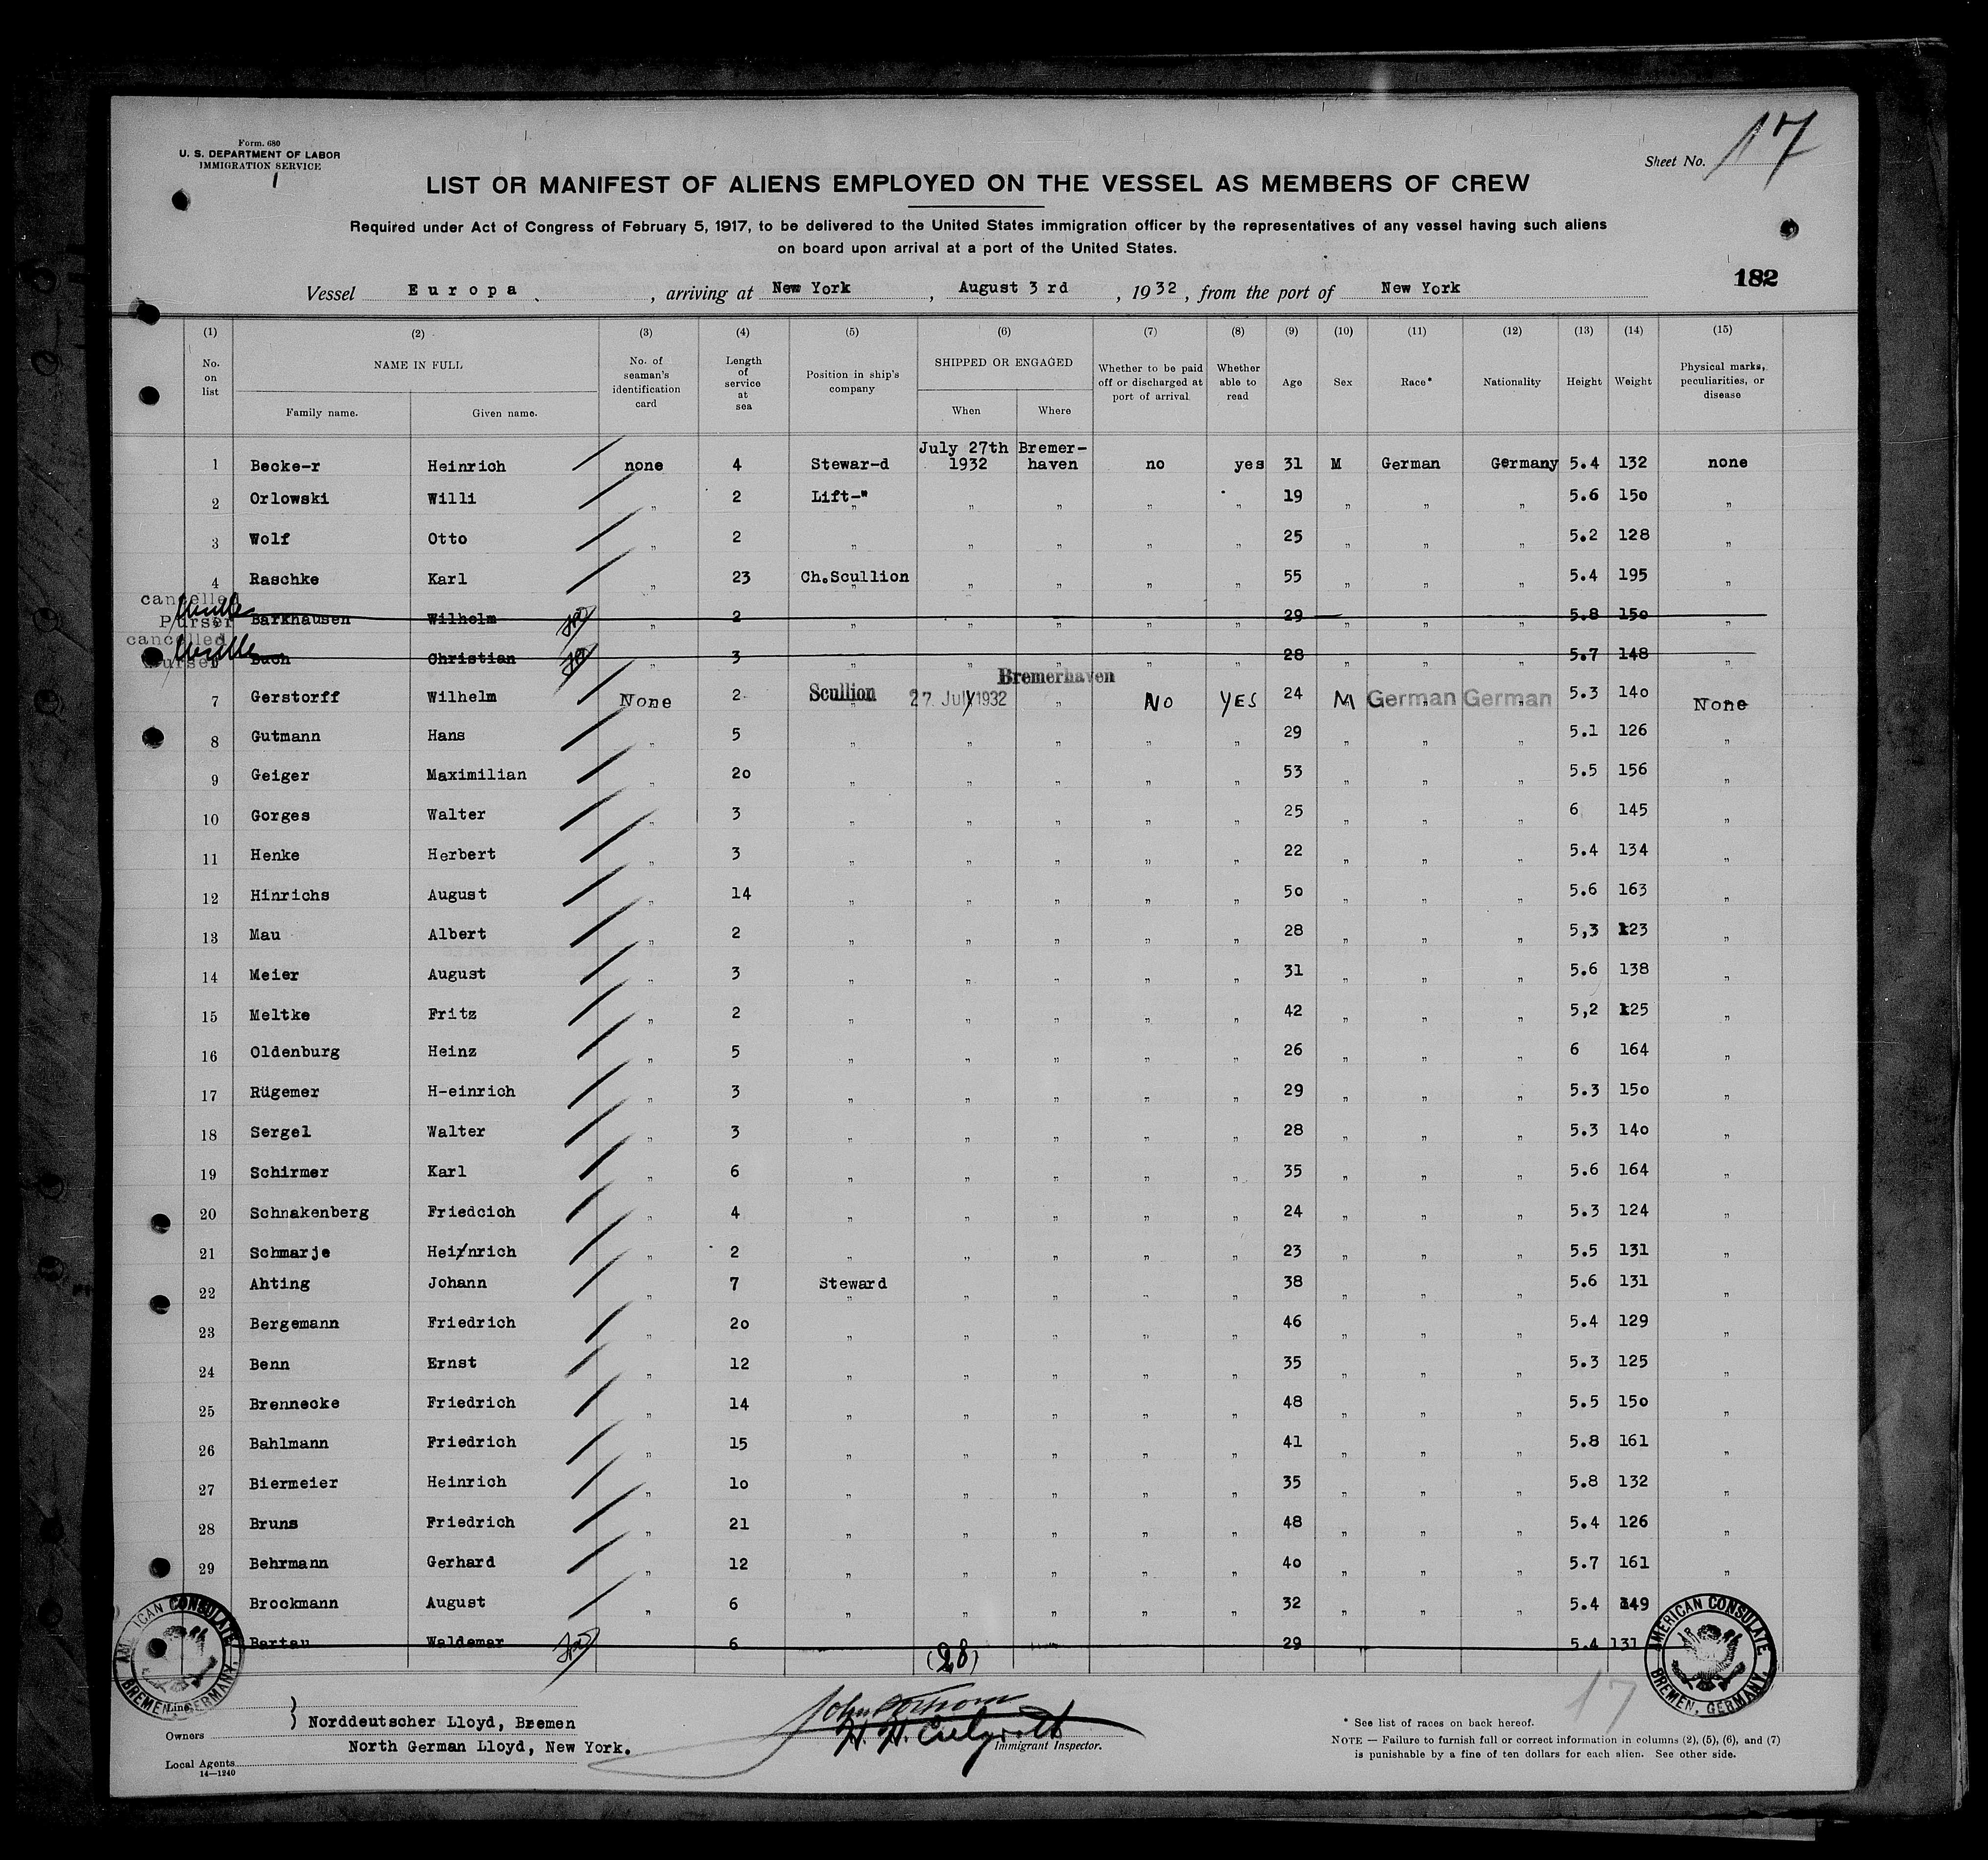 Form. 680
U. S. DEPARTMENT OF LABOR
IMMIGRATION SERVICE
Sheet No. 17
LIST OR MANIFEST OF ALIENS EMPLOYED ON THE VESSEL AS MEMBERS OF CREW
Required under Act of Congress of February 5, 1917, to be delivered to the United States immigration officer by the representatives of any vessel having such aliens
on board upon arrival at a port of the United States.
182
Vessel Europa , arriving at New York , August 3 rd , 1932, from the port of New York
(1) (2) (3) (4) (5) (6) (7) (8) (9) (10) (11) (12) (13) (14) (15)
No. on list NAME IN FULL Family name. Given name. No. of seaman's identification card Length of service at sea Position in ship's company SHIPPED OR ENGAGED When Where Whether to be paid off or discharged at port of arrival Whether able to read Age Sex Race* Nationality Height Weight Physical marks, peculiarities, or disease
1 Becke-r Heinrich none 4 Stewar-d July 27th 1932 Bremer-haven no yes 31 M German Germany 5.4 132 none
2 Orlowski Willi " 2 Lift-" " " " " " 19 " " " 5.6 150 "
3 Wolf Otto " 2 " " " " " 25 " " " 5.2 128 "
4 Raschke Karl " 23 Ch.Scullion " " " " 55 " " " 5.4 195 "
cancelled
Purser Barkhausen Wilhelm " 2 " " " " " 29 " " 5.8 150 "
cancelled
Purser Buch Christian " 3 " " " " " 28 " " " 5.7 148 "
7 Gerstorff Wilhelm None 2 Scullion 27. July 1932 Bremerhaven " NO YES 24 M German German 5.3 140 None
8 Gutmann Hans " 5 " " " " " 29 " " " 5.1 126 "
9 Geiger Maximilian " 20 " " " " " 53 " " " 5.5 156 "
10 Gorges Walter " 3 " " " " " 25 " " " 6 145 "
11 Henke Herbert " 3 " " " " " 22 " " " 5.4 134 "
12 Hinrichs August " 14 " " " " " 50 " " " 5.6 163 "
13 Mau Albert " 2 " " " " " 28 " " " 5,3 123 "
14 Meier August " 3 " " " " " 31 " " " 5.6 138 "
15 Meltke Fritz " 2 " " " " " 42 " " " 5,2 125 "
16 Oldenburg Heinz " 5 " " " " " 26 " " " 6 164 "
17 Rügemer H-einrich " 3 " " " " " 29 " " " 5.3 150 "
18 Sergel Walter " 3 " " " " " 28 " " " 5.3 140 "
19 Schirmer Karl " 6 " " " " " 35 " " " 5.6 164 "
20 Schnakenberg Friedcich " 4 " " " " " 24 " " " 5.3 124 "
21 Schmarje Hei/nrich " 2 " " " " " 23 " " " 5.5 131 "
22 Ahting Johann " 7 Steward " " " " " 38 " " " 5.6 131 "
23 Bergemann Friedrich " 20 " " " " " 46 " " " 5.4 129 "
24 Benn Ernst " 12 " " " " " 35 " " " 5.3 125 "
25 Brennecke Friedrich " 14 " " " " " 48 " " " 5.5 150 "
26 Bahlmann Friedrich " 15 " " " " " 41 " " " 5.8 161 "
27 Biermeier Heinrich " 10 " " " " " 35 " " " 5.8 132 "
28 Bruns Friedrich " 21 " " " " " 48 " " " 5.4 126 "
29 Behrmann Gerhard " 12 " " " " " 40 " " " 5.7 161 "
Brockmann August " 6 " " " " " 32 " " " 5.4 149 "
Bartau Waldemar 6 29 5.4 131
(28)
AMERICAN CONSULATE, BREMEN, GERMANY.
AMERICAN CONSULATE, BREMEN, GERMANY.
17
Line
Owners } Norddeutscher Lloyd, Bremen
North German Lloyd, New York.
Local Agents
14—1240
Immigrant Inspector.
* See list of races on back hereof.
NOTE — Failure to furnish full or correct information in columns (2), (5), (6), and (7)
is punishable by a fine of ten dollars for each alien. See other side.